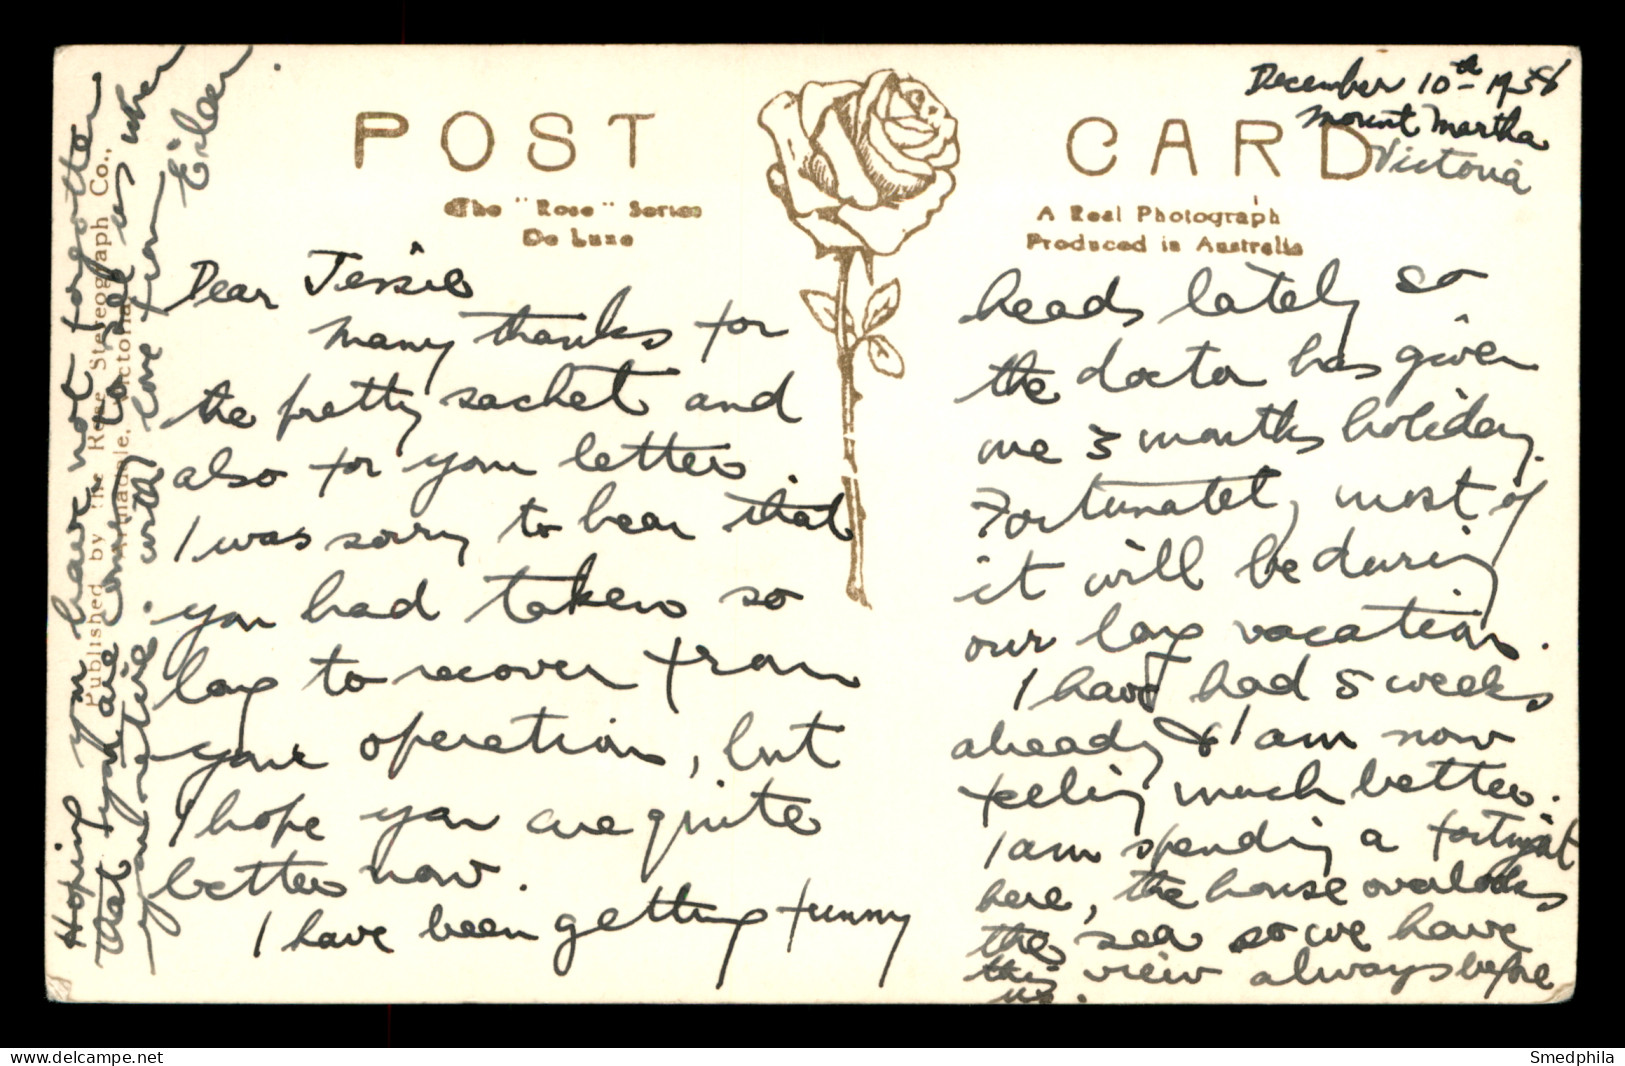 December 10th 1938
Mount Martha
Victoria
POST CARD
The "Rose" Series
De Luxe
A Real Photograph
Produced in Australia
Dear Jessie
Many thanks for
the pretty sachet and
also for your letter.
I was sorry to hear that
you had taken so
long to recover from
your operation, but
I hope you are quite
better now.
I have been getting funny
heads lately so
the doctor has given
me 3 months holiday.
Fortunately most of
it will be during
our long vacation.
I have had 5 weeks
already & I am now
feeling much better.
I am spending a fortnight
here, the house overlooks
the sea so we have
this view always before
us.
Hoping you have not forgotten
that you are coming to see us when
you retire. With love from
Eileen
Published by The Rose Stereograph Co.,
Armadale, Victoria
Smedphila